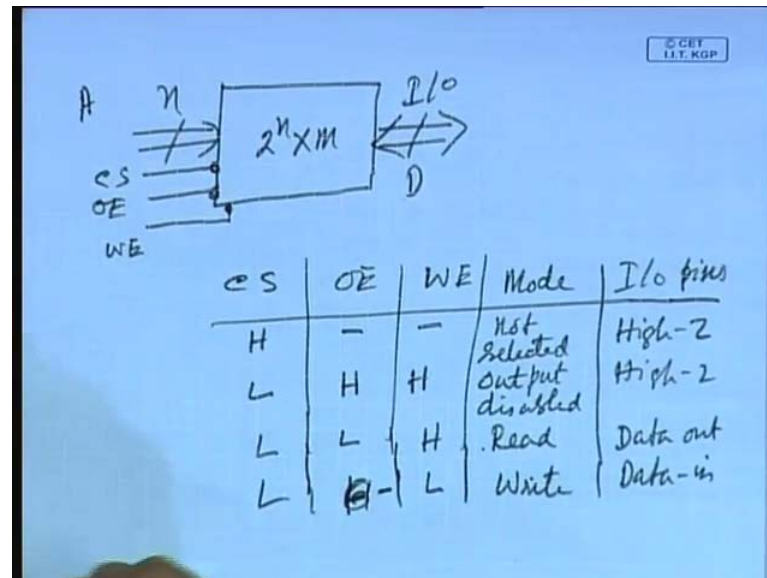 © CET
I.I.T. KGP
A n 2ⁿxm I/O
D
CS
OE
WE
CS OE WE Mode I/O pins
H - - not selected High-Z
L H H output disabled High-Z
L L H Read Data out
L - L Write Data-in